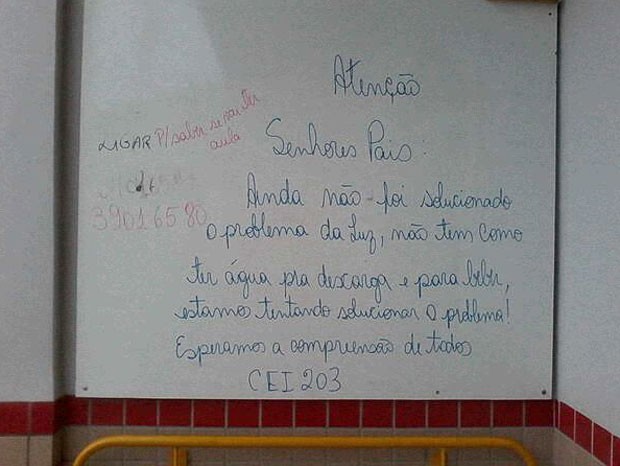 Atenção
LIGAR P/saber se vai ter
aula
39016580
Senhores Pais:
Ainda não foi solucionado
o problema da Luz, não tem como
ter água pra descarga e para beber,
estamos tentando solucionar o problema!
Esperamos a compreensão de todos
CEI 203